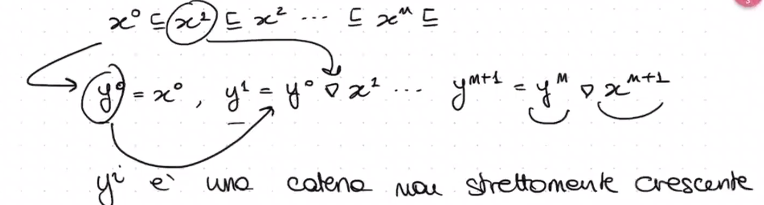 x⁰ ⊑ x¹ ⊑ x² ... ⊑ xᵐ ⊑
y⁰ = x⁰, y¹ = y⁰ ▽ x¹ ... yᵐ⁺¹ = yᵐ ▽ xᵐ⁺¹
yⁱ è una catena non strettamente crescente